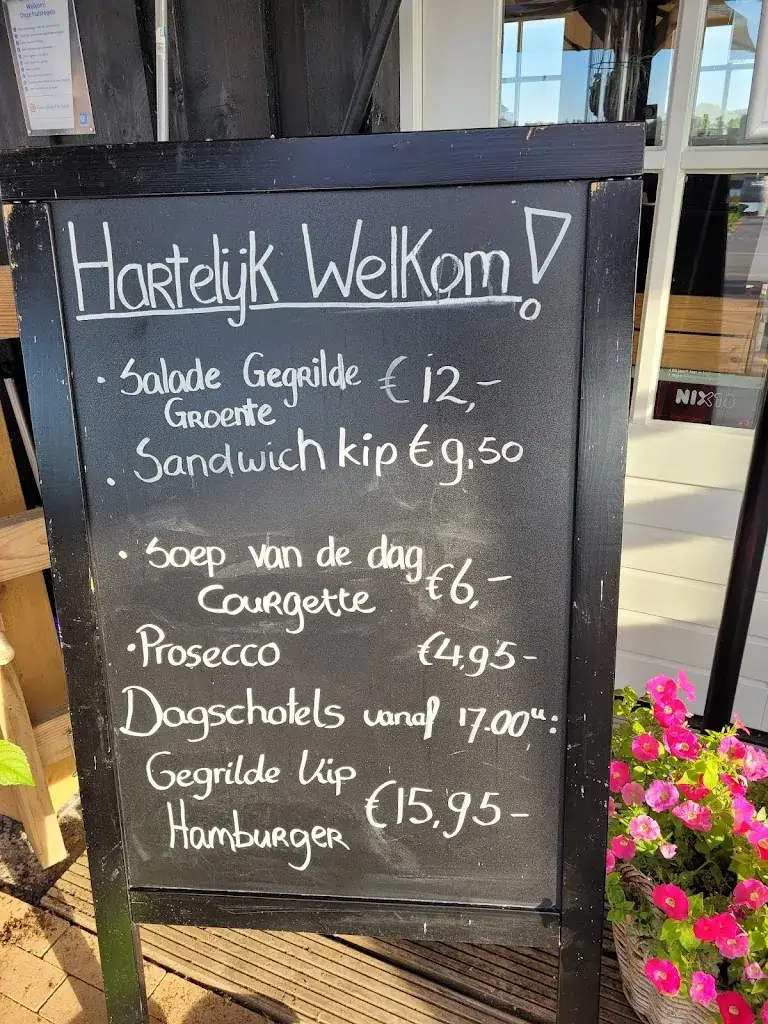 Welkom!
Onze huisregels
Hartelijk Welkom!
• Salade Gegrilde € 12,-
Groente
• Sandwich kip €9,50
• Soep van de dag
Courgette €6,-
• Prosecco €4,95-
Dagschotels vanaf 17.00u:
Gegrilde kip
Hamburger €15,95-
NIX18